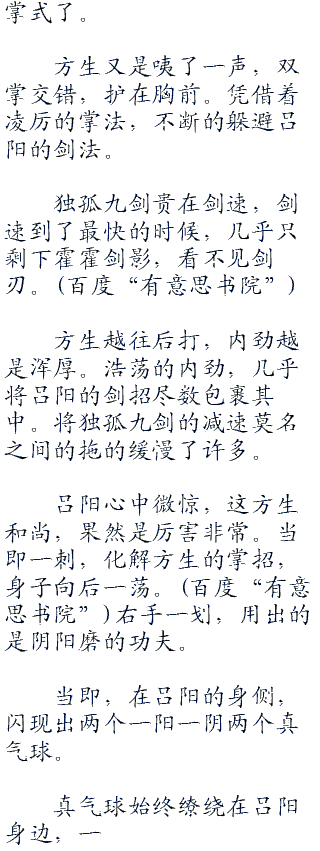 掌式了。
方生又是咦了一声，双
掌交错，护在胸前。凭借着
凌厉的掌法，不断的躲避吕
阳的剑法。
独孤九剑贵在剑速，剑
速到了最快的时候，几乎只
剩下霍霍剑影，看不见剑
刃。(百度“有意思书院”)
方生越往后打，内劲越
是浑厚。浩荡的内劲，几乎
将吕阳的剑招尽数包裹其
中。将独孤九剑的减速莫名
之间的拖的缓漫了许多。
吕阳心中微惊，这方生
和尚，果然是厉害非常。当
即一刺，化解方生的掌招，
身子向后一荡。(百度“有意
思书院”)右手一划，用出的
是阴阳磨的功夫。
当即，在吕阳的身侧，
闪现出两个一阳一阴两个真
气球。
真气球始终缭绕在吕阳
身边，一